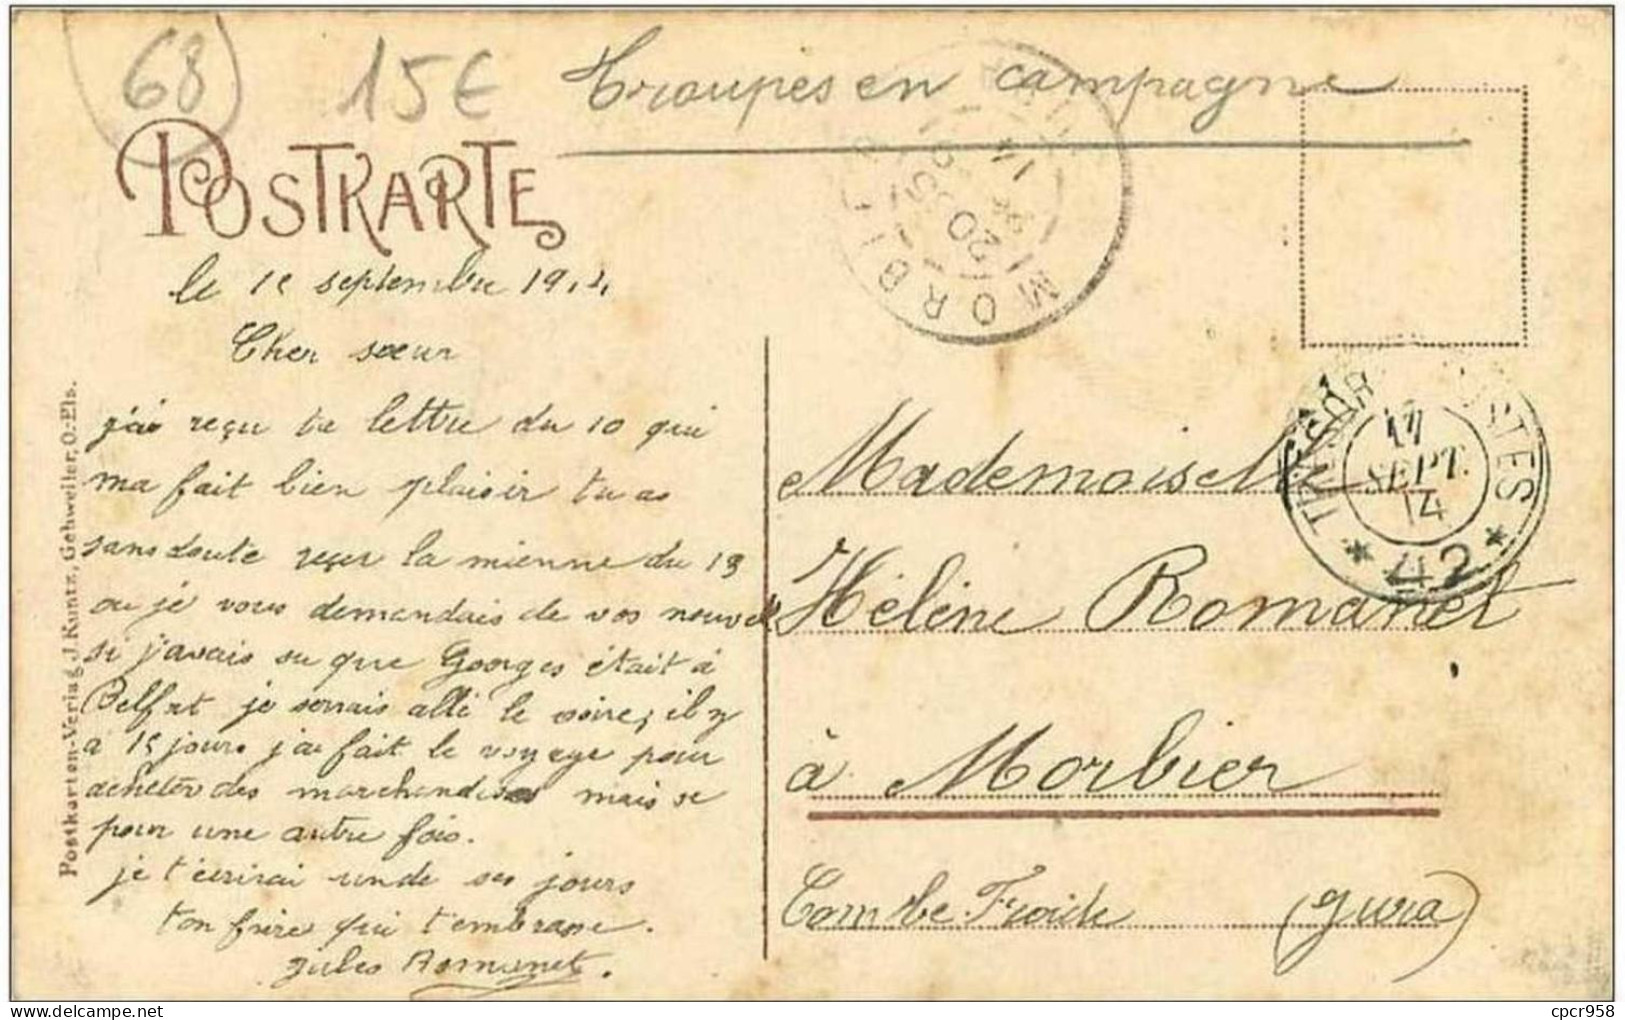 68
15€
Troupes en campagne
POSTKARTE
MORBIER
20
14
le 15 septembre 1914
Cher sœur
j'ai reçu ta lettre du 10 qui
ma fait bien plaisir tu as
sans doute reçu la mienne du 13
ou je vous demandais de vos nouvelle
si j'avais su que Georges était à
Belfort je serrais allé le voire, il y
a 15 jours j'ai fait le voyage pour
acheter des marchandises mais se
pour une autre fois.
je t'écrirai unde ses jours
ton frère qui t'embrasse.
Jules Romanet.
Postkarten-Verlag J. Kuntz, Gebweiler, O.-Els.
TRESOR POSTES
17
SEPT.
14
* 42 *
Mademoiselle
Hélène Romanet
à Morbier
Combe Froide (Jura)
cpcr958